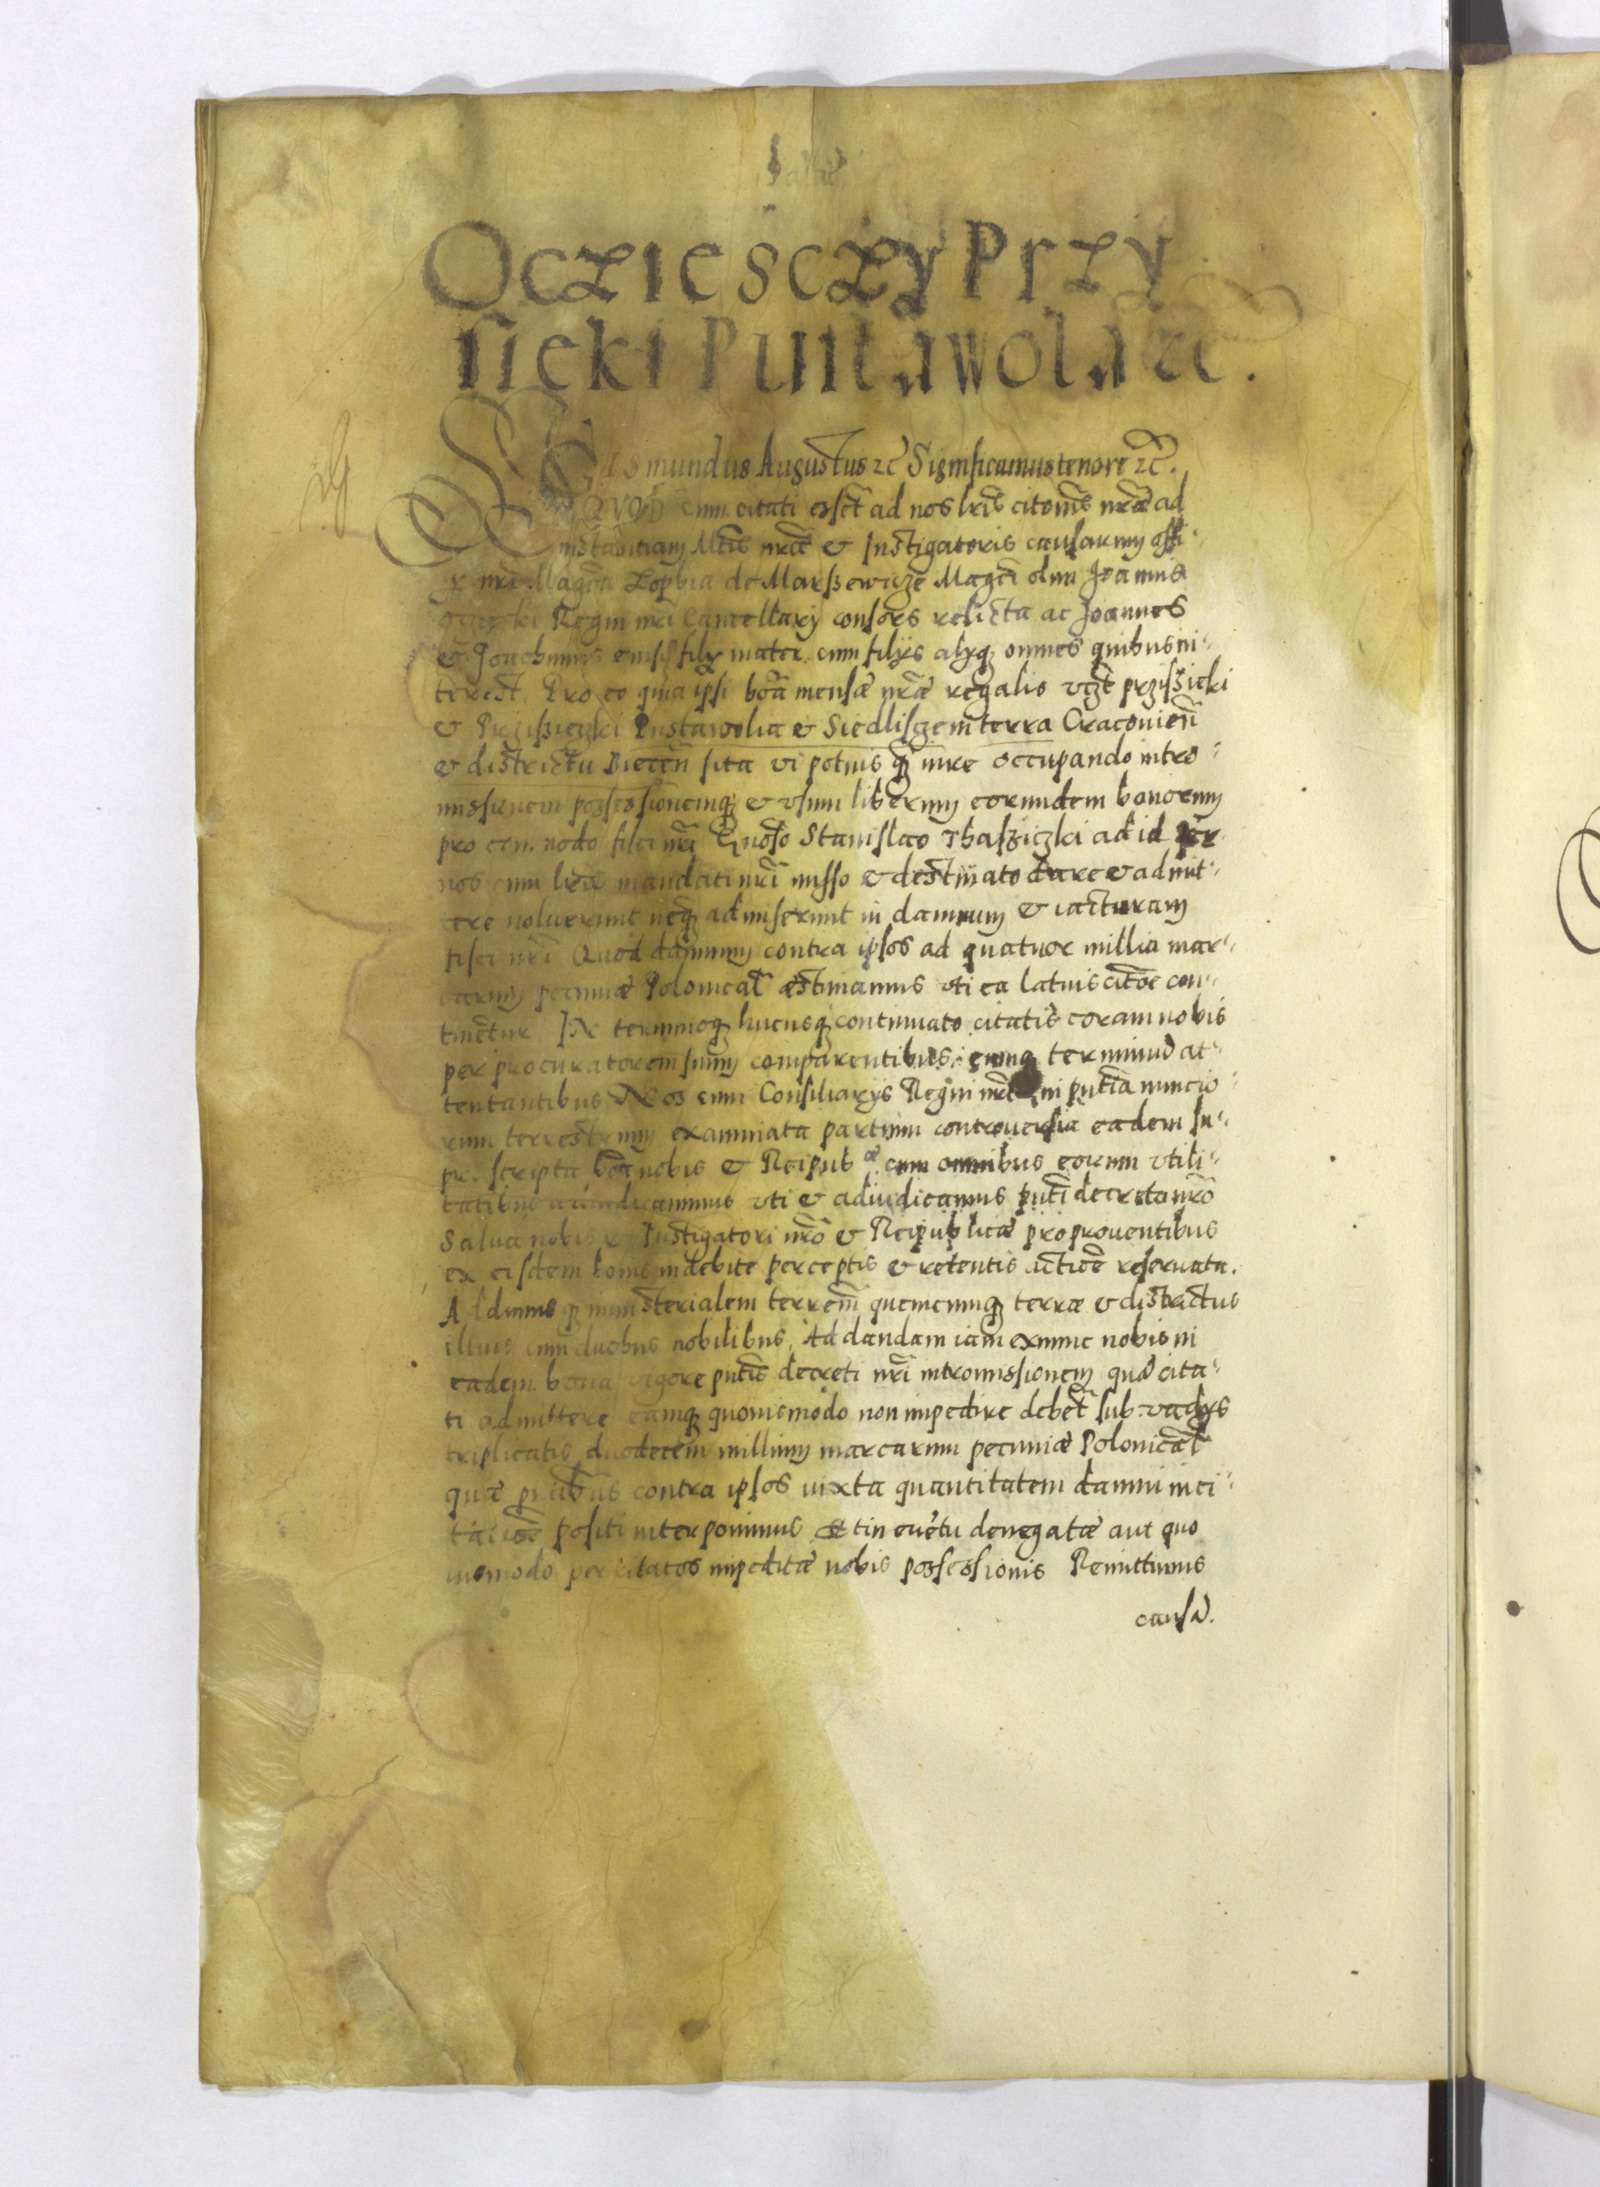 Ocziesczy Przy
sicki Pustawola etc.
SIGISmundus Augustus etc Significamus tenore etc.
QVOD cum citati essēt ad nos lrīs citonis nrāe ad
instantiam Mtis nrāe & Instigatoris causarum offi-
y nrī Magca Zophia de Marszewicze Magci olim Joannis
Oczieski Regni nrī Cancellarij consors relicta ac Joannes
& Joachimus eius filij mater cum filijs alijq omnes quibus in-
terest. Pro eo quia ipsi bona mensæ nrāe regalis vczt przissieki
& Przissieczki Pustawolia & Siedliscze in terra Cracouien
& districtu Biecen sita vi potius q iure occupando intro-
missionem possessionemq & vsum liberum eorundem bonorum
pro cen. nodo fisci nrī Gnoso Stanislao Thasziczki ad id per
nos cum lris mandati nrī misso & destinato dare & admit-
tere noluerunt neq admiserunt in damnum & iacturam
fisci nrī Quod damnum contra ipsos ad quatuor millia mar-
carum pecuniæ Polonical æstimamus vti ea latius citoe con-
tinetur IN terminoq hucusq continuato citatis coram nobis
per procuratorem suum comparentibus, eumq terminū at-
tentantibus Nos cum Consiliarijs Regni nri in pntia nuncio-
rum terrestrium examinata partium controuersia eadem su-
pr. scripta bona nobis & Reipub æ cum omnibus eorum vtili-
tatibus adiudicamus vti & adiudicamus pnti decreto nrō
Salua nobis & Instigatori nrō & Reipublicæ pro prouentibus
ex eisdem bonis indebite perceptis & retentis actioē reseruata.
Addimus q ministerialem terrem quemcumq terræ & districtus
illius cum duobus nobilibus, Ad dandam iam ex nunc nobis in
eadem bona vigore pntis decreti nrī intromissionem quā cita-
ti admittere eamq quouismodo non impedire debēt sub vadijs
triplicatis duodecem millium marcarum pecuniæ Polonical
quæ pntibus contra ipsos iuxta quantitatem damni in ci-
tatioē positi interponimus Et in euētu denegatæ aut quo
uismodo per citatos impeditæ nobis possessionis Remittimus
causā.